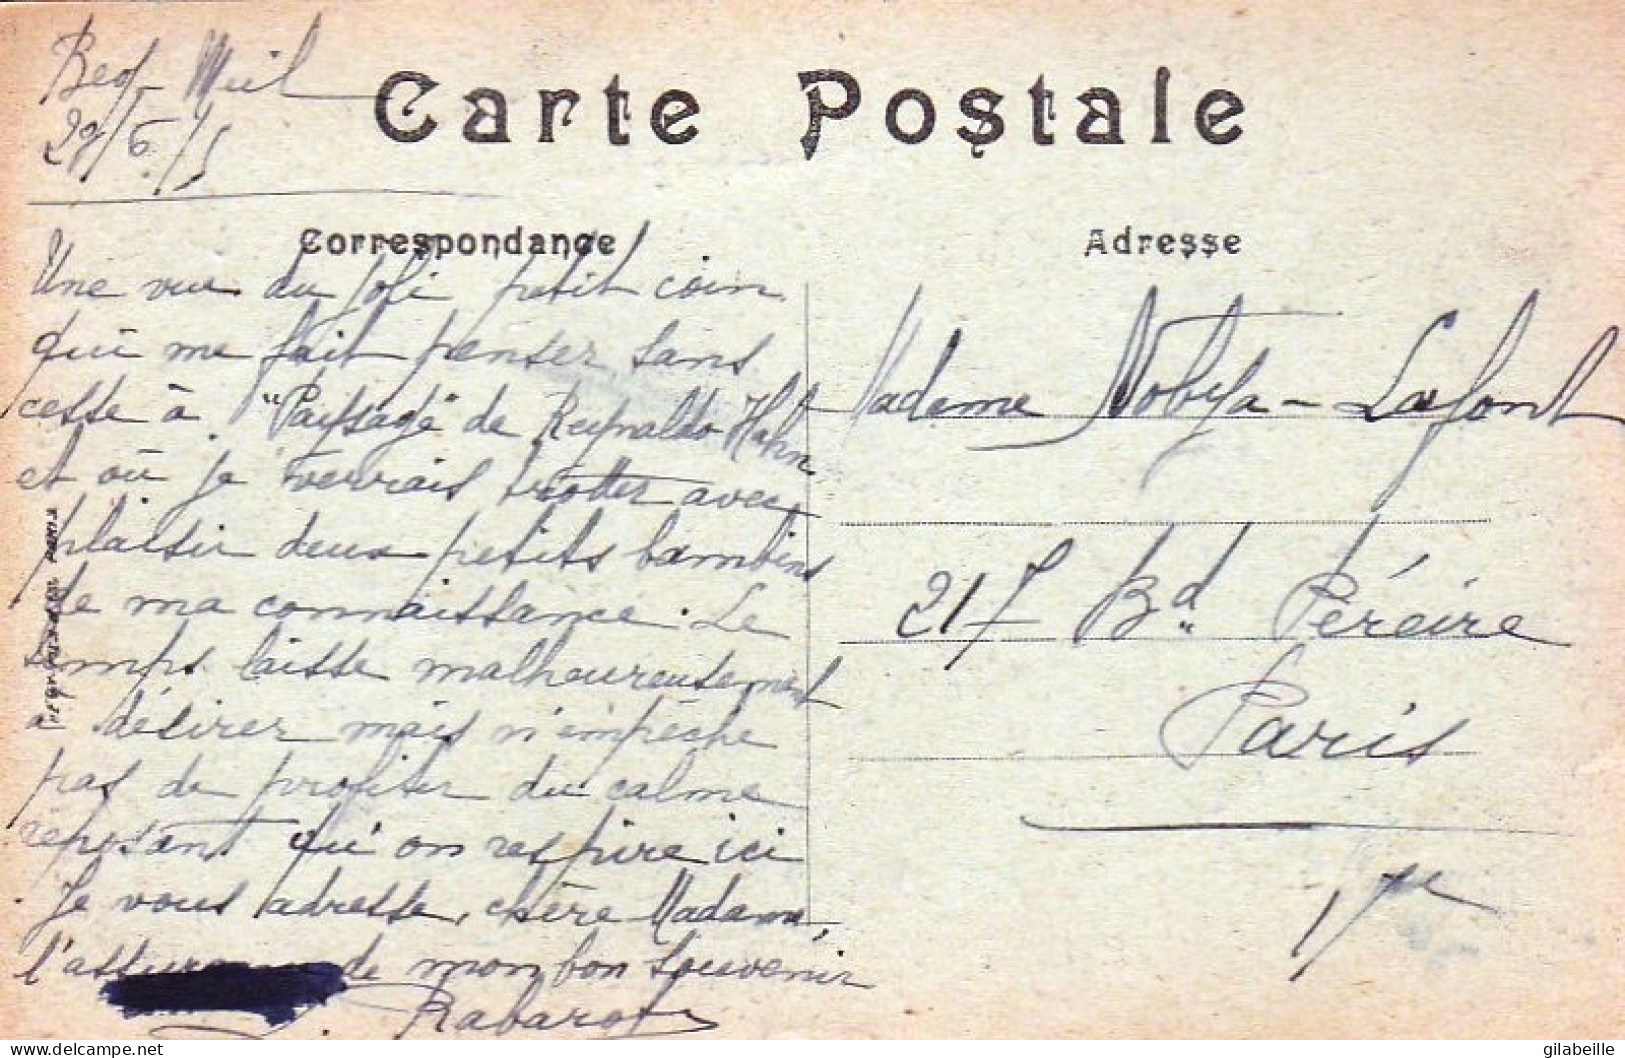 Beg-Meil
29/6/15
Carte Postale
Correspondance
Adresse
Une vue du joli petit coin
qui me fait penser sans
cesse à "Paysage" de Reynaldo Hahn
et où je verrais trotter avec
plaisir deux petits bambins
de ma connaissance. Le
temps laisse malheureusement
à désirer mais n'empêche
pas de profiter du calme
reposant qu'on respire ici
Je vous adresse, chère Madame,
l'assurance de mon bon souvenir
Rabarot
Madame Lafont
217 Bd Péreire
Paris
17e
www.delcampe.net
gilabeille